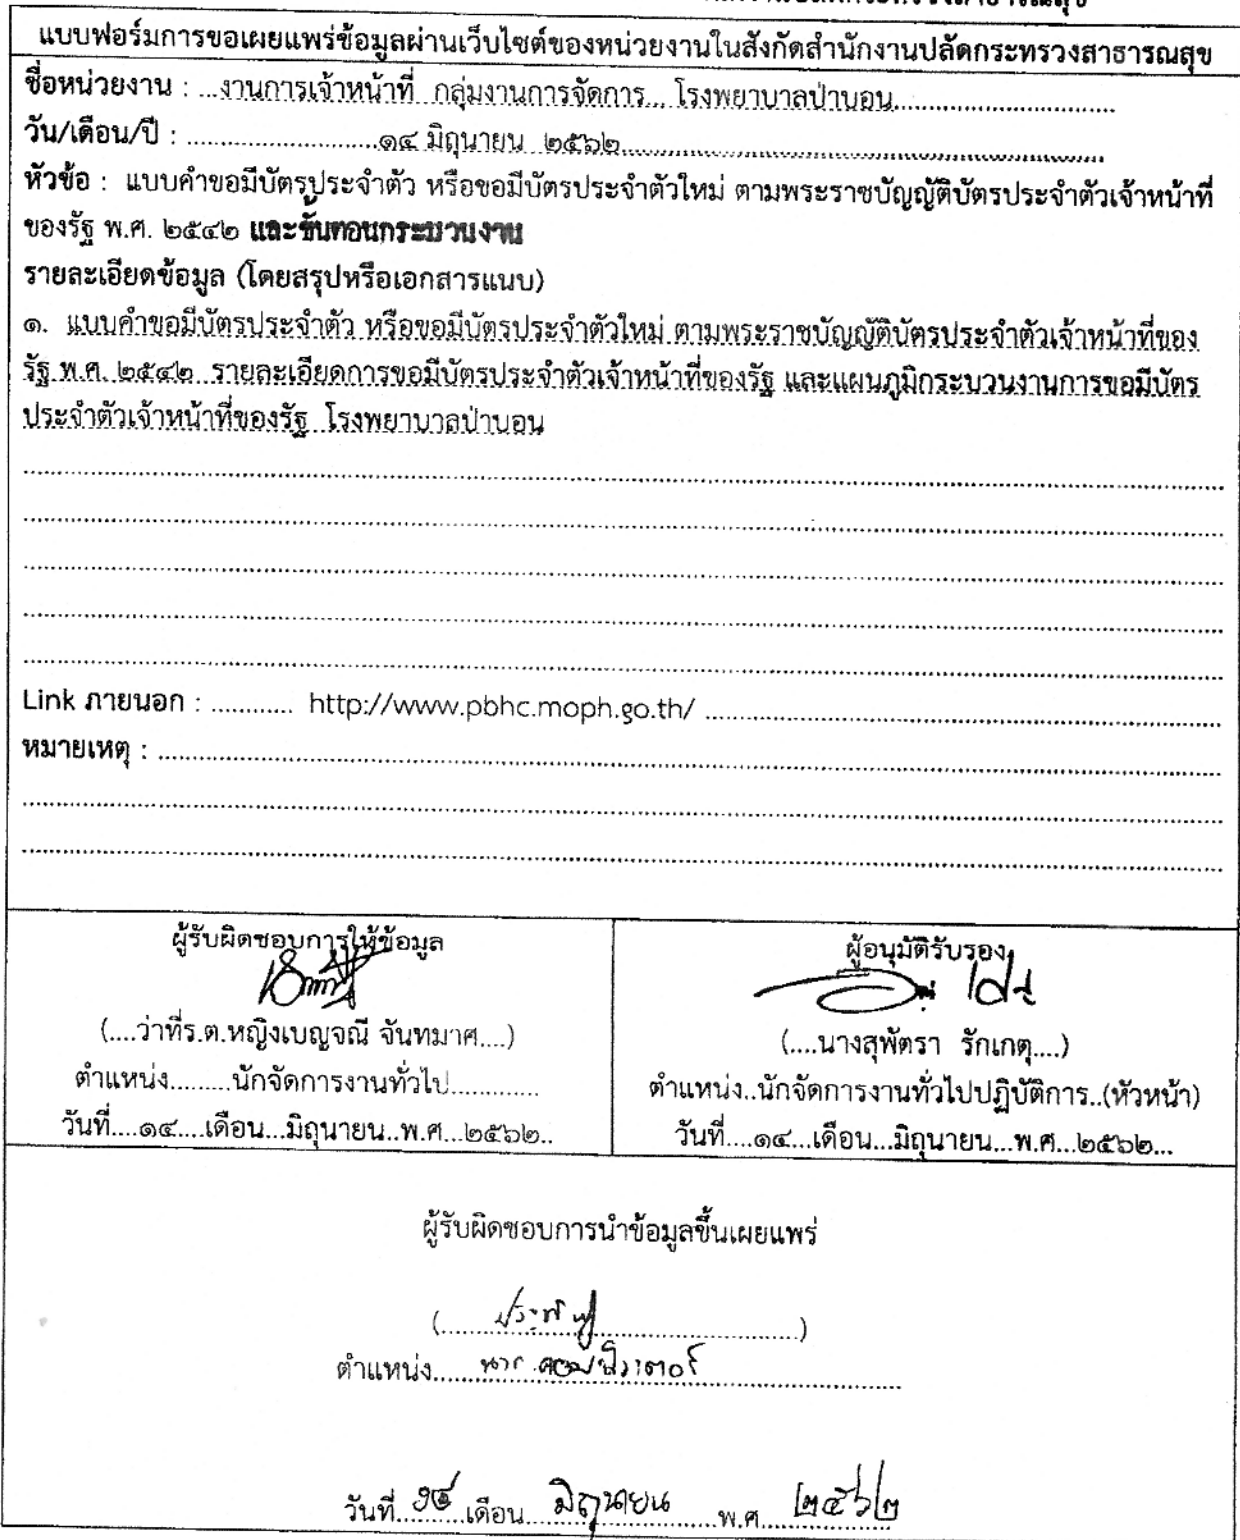 แบบฟอร์มการขอเผยแพร่ข้อมูลผ่านเว็บไซต์ของหน่วยงานในสังกัดสำนักงานปลัดกระทรวงสาธารณสุข
ชื่อหน่วยงาน : ...งานการเจ้าหน้าที่ กลุ่มงานการจัดการ... โรงพยาบาลป่าบอน..............................
วัน/เดือน/ปี : ............................๑๔ มิถุนายน ๒๕๖๒......................................................................
หัวข้อ : แบบคำขอมีบัตรประจำตัว หรือขอมีบัตรประจำตัวใหม่ ตามพระราชบัญญัติบัตรประจำตัวเจ้าหน้าที่
ของรัฐ พ.ศ. ๒๕๔๒ และขั้นตอนกระบวนงาน
รายละเอียดข้อมูล (โดยสรุปหรือเอกสารแนบ)
๑. แบบคำขอมีบัตรประจำตัว หรือขอมีบัตรประจำตัวใหม่ ตามพระราชบัญญัติบัตรประจำตัวเจ้าหน้าที่ของ
รัฐ พ.ศ. ๒๕๔๒ รายละเอียดการขอมีบัตรประจำตัวเจ้าหน้าที่ของรัฐ และแผนภูมิกระบวนงานการขอมีบัตร
ประจำตัวเจ้าหน้าที่ของรัฐ โรงพยาบาลป่าบอน
Link ภายนอก : ............ http://www.pbhc.moph.go.th/ ..........................................................
หมายเหตุ : ..........................................................................................
ผู้รับผิดชอบการให้ข้อมูล
(....ว่าที่ร.ต.หญิงเบญจณี จันทมาศ....)
ตำแหน่ง.........นักจัดการงานทั่วไป............
วันที่....๑๔....เดือน...มิถุนายน..พ.ศ...๒๕๖๒..
ผู้อนุมัติรับรอง
(....นางสุพัตรา รักเกตุ....)
ตำแหน่ง..นักจัดการงานทั่วไปปฏิบัติการ..(หัวหน้า)
วันที่....๑๔...เดือน...มิถุนายน...พ.ศ...๒๕๖๒...
ผู้รับผิดชอบการนำข้อมูลขึ้นเผยแพร่
ตำแหน่ง.......
วันที่ ๑๔ เดือน มิถุนายน พ.ศ. ๒๕๖๒